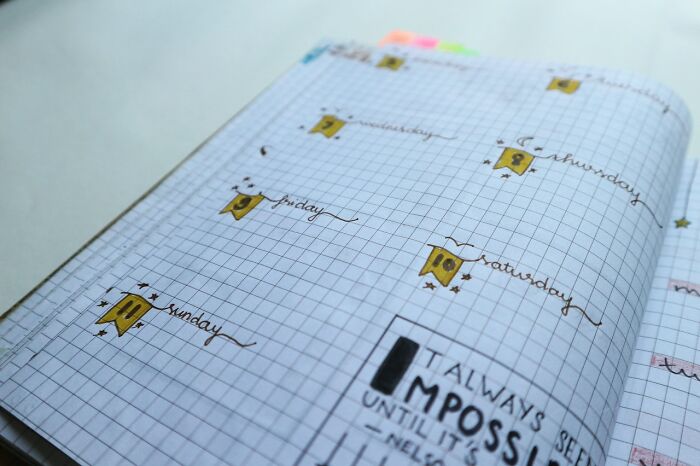 5
6
7 wednesday
8 thursday
9 friday
10 saturday
11 sunday
IT ALWAYS SEE
IMPOSSI
UNTIL IT'S
—NELSO